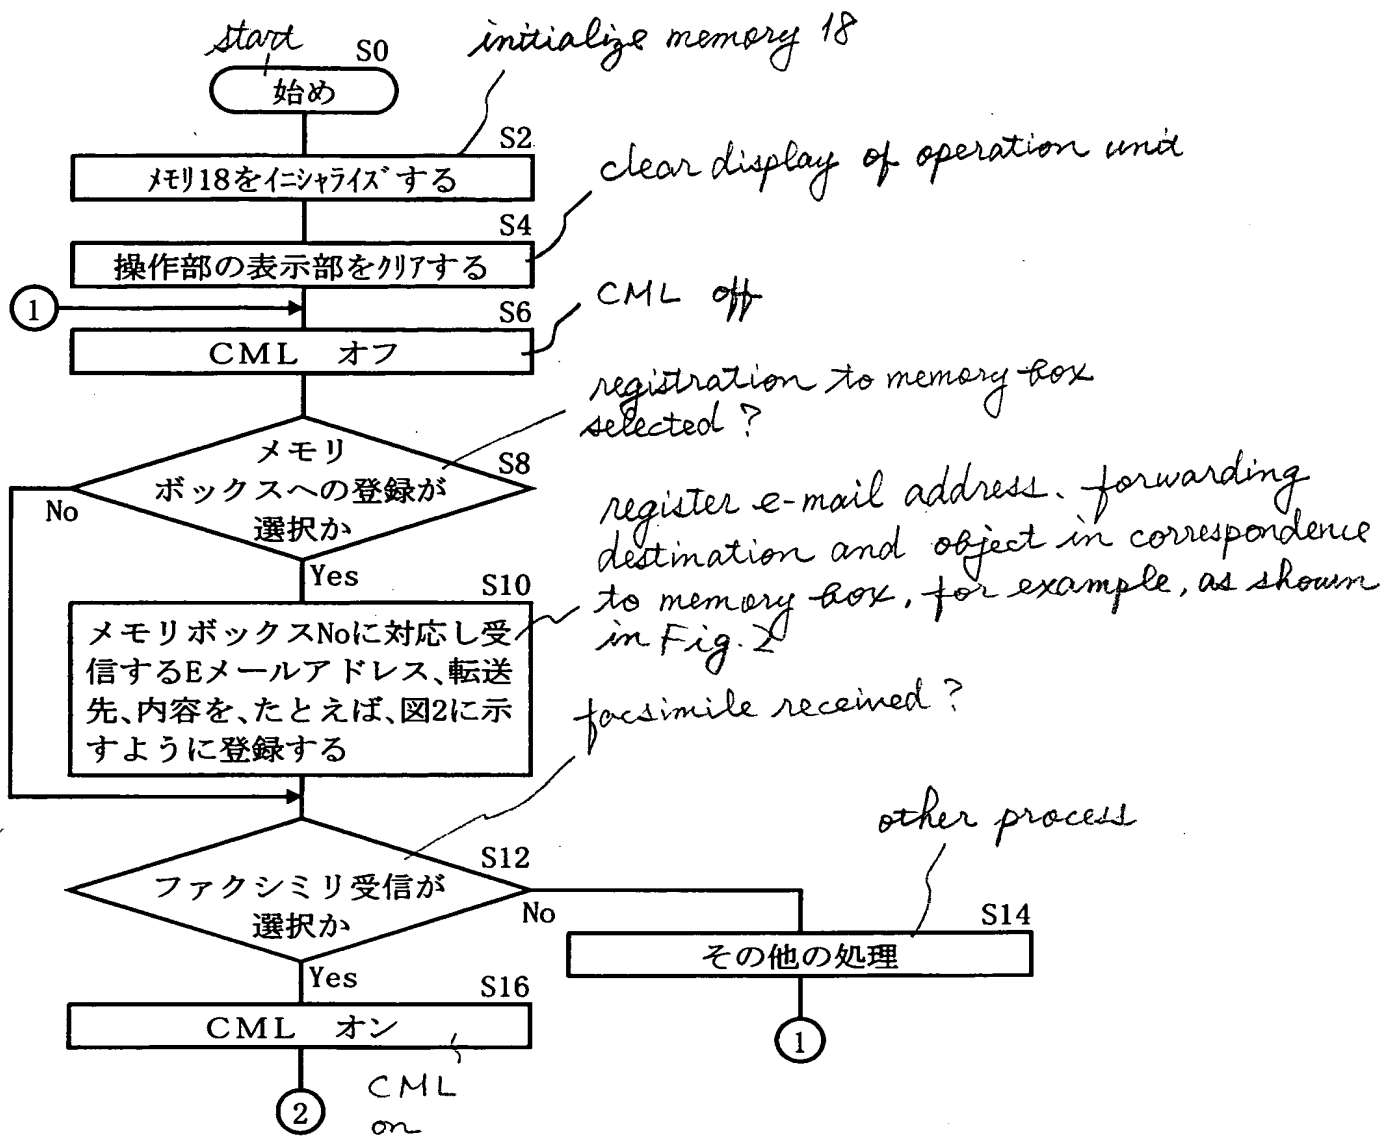 start
S0
initialize memory 18
始め
S2
メモリ18をイニシャライズする
clear display of operation unit
S4
操作部の表示部をクリアする
1
CML off
S6
CML オフ
registration to memory box
selected?
メモリ
S8
ボックスへの登録が
選択か
No
Yes
register e-mail address. forwarding
destination and object in correspondence
to memory box, for example, as shown
in Fig. 2
S10
メモリボックスNoに対応し受
信するEメールアドレス、転送
先、内容を、たとえば、図2に示
すように登録する
facsimile received?
other process
S12
ファクシミリ受信が
選択か
No
Yes
S14
その他の処理
S16
CML オン
1
CML
on
2